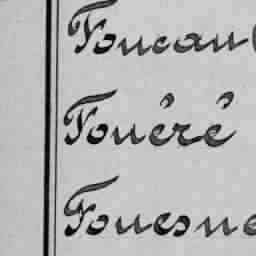 Foucau
Fouéré
Fouesne